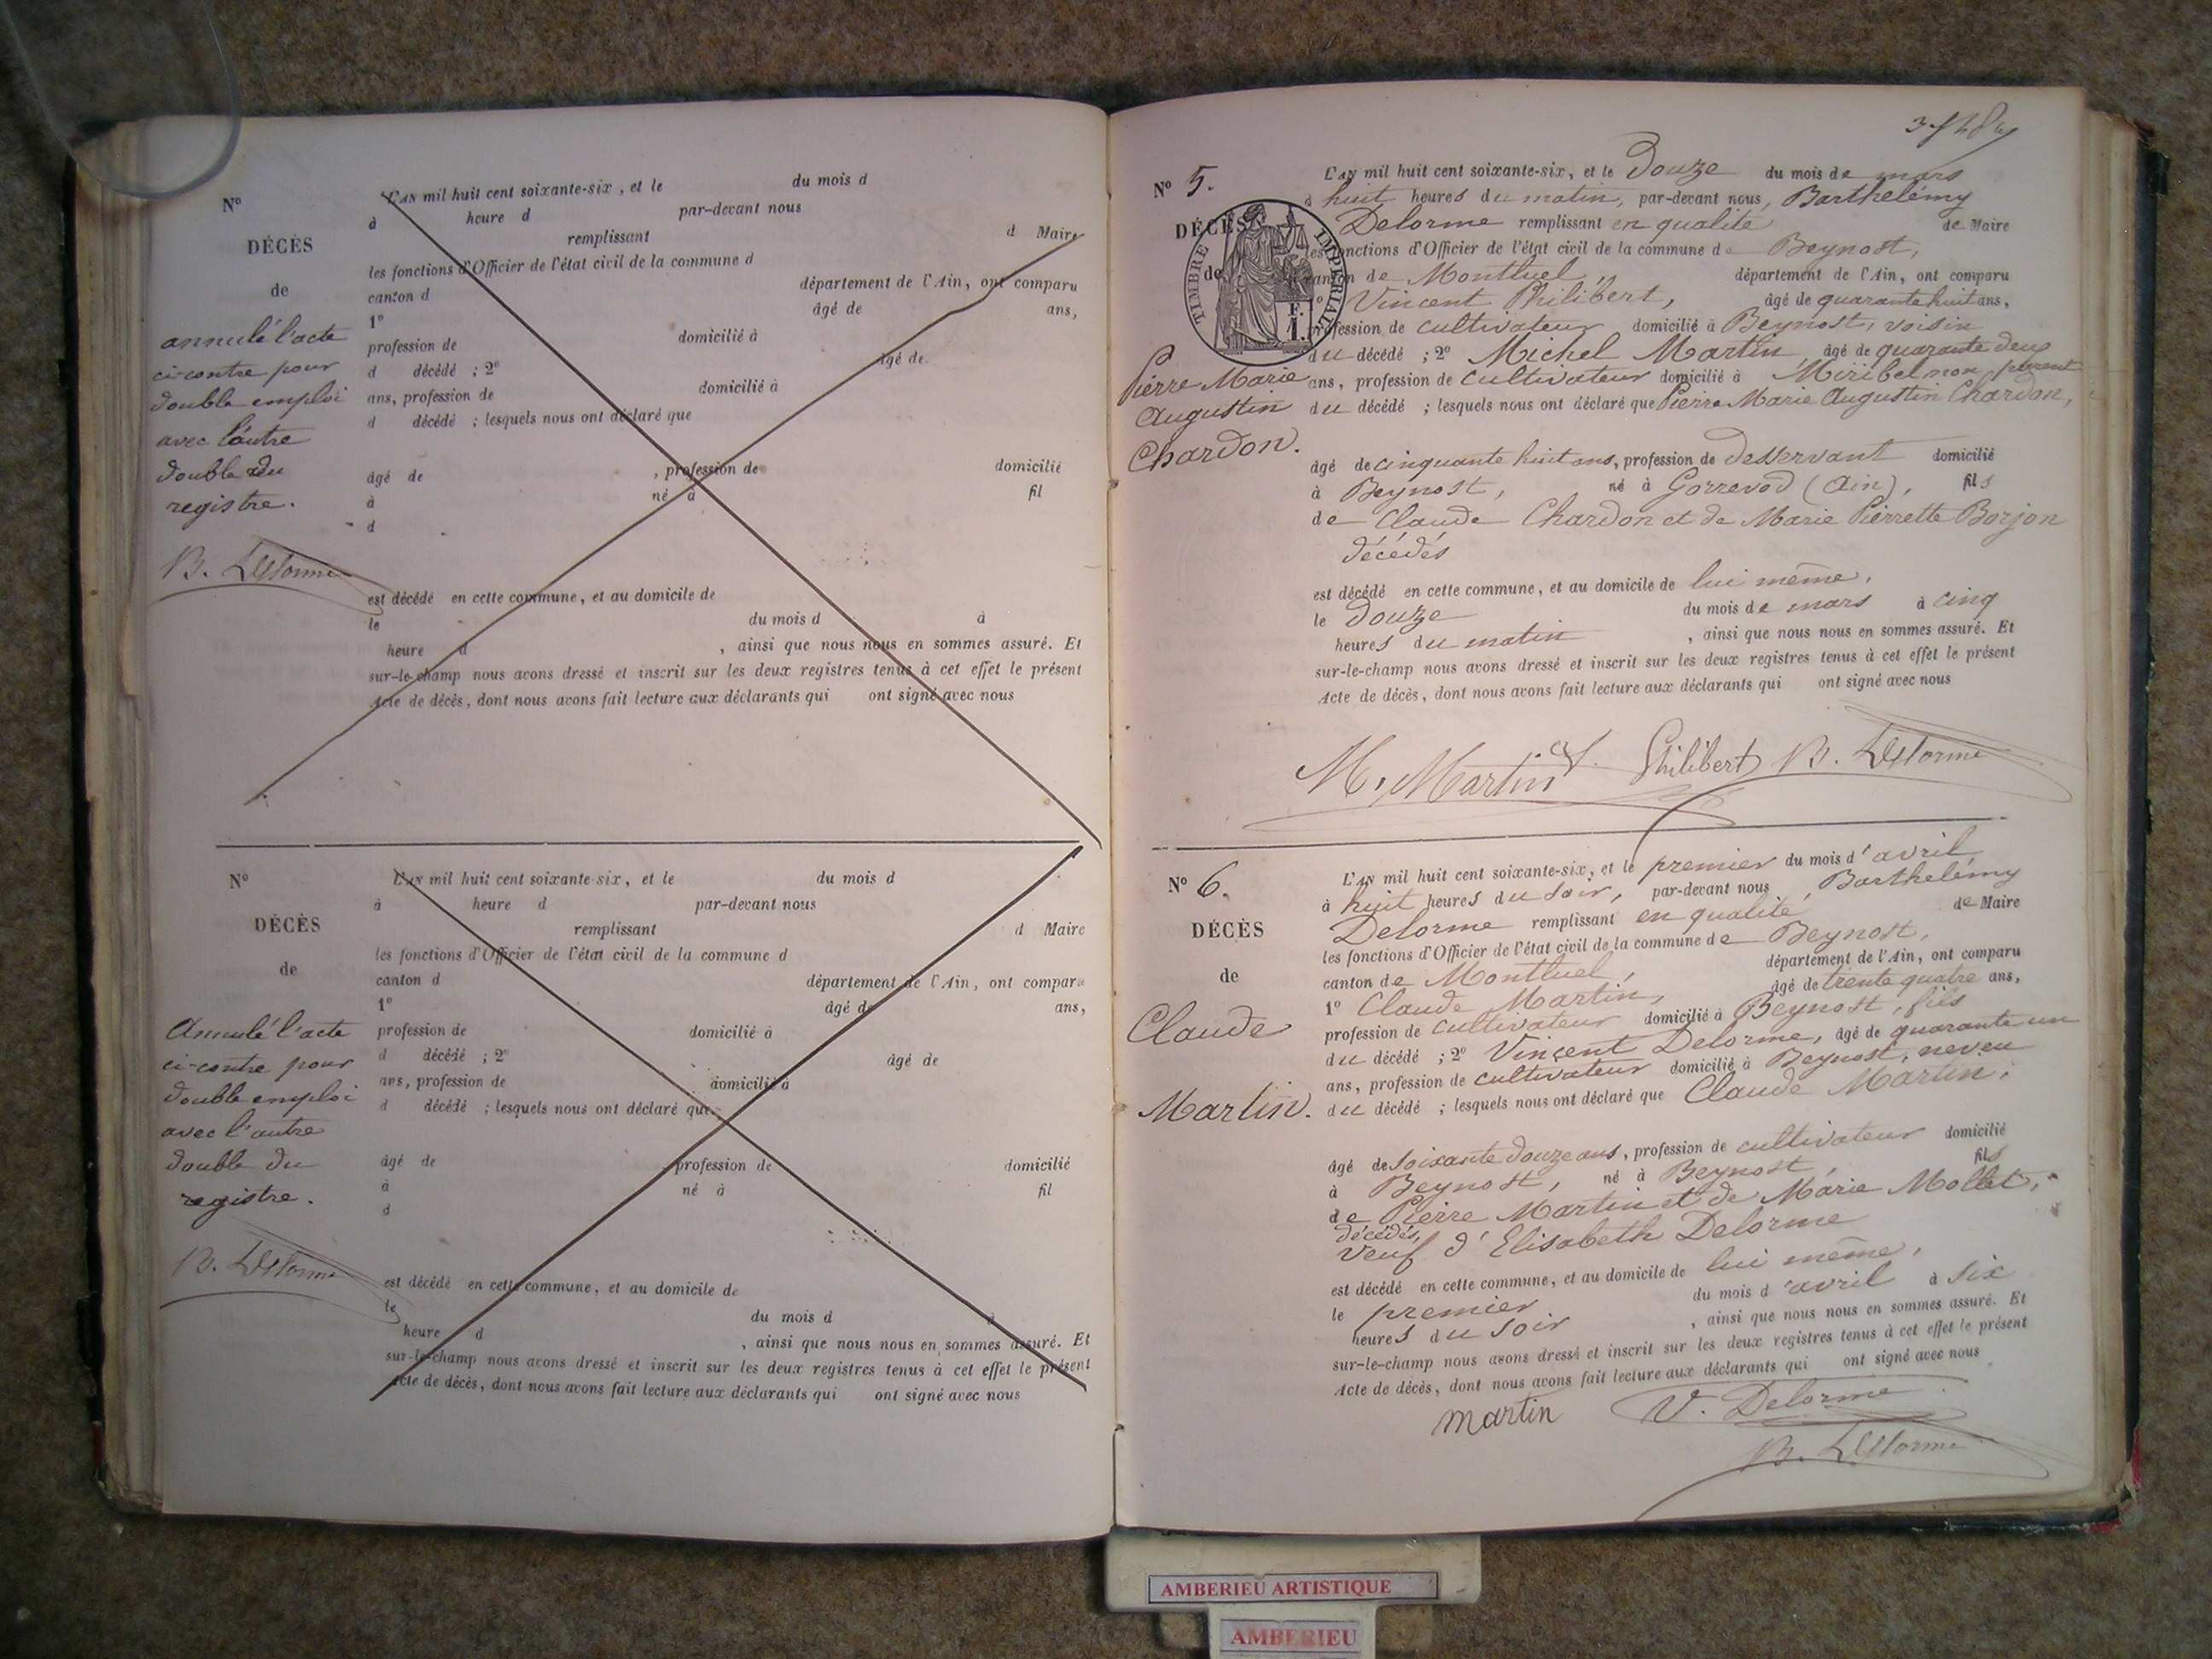 L'AN mil huit cent soixante-six, et le du mois d
N° à heure d par-devant nous
DÉCÈS remplissant d Maire
les fonctions d'Officier de l'état civil de la commune d
de canton d département de l'Ain, ont comparu
1° âgé de ans,
annulé l'acte profession de domicilié à
ci-contre pour d décédé ; 2° âgé de
double emploi ans, profession de domicilié à
avec l'autre d décédé ; lesquels nous ont déclaré que
double du âgé de , profession de domicilié
registre. à né à fil
d
B. Delorme
est décédé en cette commune, et au domicile de
le du mois d à
heure d , ainsi que nous nous en sommes assuré. Et
sur-le-champ nous avons dressé et inscrit sur les deux registres tenus à cet effet le présent
Acte de décès, dont nous avons fait lecture aux déclarants qui ont signé avec nous
N° L'AN mil huit cent soixante-six, et le du mois d
à heure d par-devant nous
DÉCÈS remplissant d Maire
les fonctions d'Officier de l'état civil de la commune d
de canton d département de l'Ain, ont comparu
1° âgé de ans,
Annulé l'acte profession de domicilié à
ci-contre pour d décédé ; 2° âgé de
double emploi ans, profession de domicilié à
avec l'autre d décédé ; lesquels nous ont déclaré que
double du âgé de profession de domicilié
registre. à né à fil
d
B. Delorme
est décédé en cette commune, et au domicile de
le du mois d à
heure d , ainsi que nous nous en sommes assuré. Et
sur-le-champ nous avons dressé et inscrit sur les deux registres tenus à cet effet le présent
Acte de décès, dont nous avons fait lecture aux déclarants qui ont signé avec nous
N° 5. L'AN mil huit cent soixante-six, et le Douze du mois de mars
à huit heures du matin, par-devant nous, Barthélémy
DÉCÈS Delorme remplissant en qualité de Maire
les fonctions d'Officier de l'état civil de la commune de Beynost,
de canton de Montluel, département de l'Ain, ont comparu
TIMBRE IMPÉRIAL
F. 1.
1° Vincent Philibert, âgé de quarante huit ans,
profession de cultivateur domicilié à Beynost, voisin
du décédé ; 2° Michel Martin, âgé de quarante deux
Pierre Marie ans, profession de cultivateur domicilié à Miribel non parent
Augustin du décédé ; lesquels nous ont déclaré que Pierre Marie Augustin Chardon,
Chardon. âgé de cinquante huit ans, profession de desservant domicilié
à Beynost, né à Gorrevod (Ain), fils
de Claude Chardon et de Marie Pierrette Borjon
décédés
est décédé en cette commune, et au domicile de lui même,
le Douze du mois de mars à cinq
heures du matin , ainsi que nous nous en sommes assuré. Et
sur-le-champ nous avons dressé et inscrit sur les deux registres tenus à cet effet le présent
Acte de décès, dont nous avons fait lecture aux déclarants qui ont signé avec nous
M. Martin Philibert B. Delorme
N° 6. L'AN mil huit cent soixante-six, et le premier du mois d'avril
à huit heures du soir, par-devant nous, Barthélémy
DÉCÈS Delorme remplissant en qualité de Maire
les fonctions d'Officier de l'état civil de la commune de Beynost,
de canton de Montluel, département de l'Ain, ont comparu
1° Claude Martin, âgé de trente quatre ans,
Claude profession de cultivateur domicilié à Beynost, fils
du décédé ; 2° Vincent Delorme, âgé de quarante un
ans, profession de cultivateur domicilié à Beynost, neveu
Martin. du décédé ; lesquels nous ont déclaré que Claude Martin,
âgé de soixante douze ans, profession de cultivateur domicilié
à Beynost, né à Beynost, fils
de Pierre Martin et de Marie Mollet,
décédés,
veuf d'Elisabeth Delorme
est décédé en cette commune, et au domicile de lui même,
le premier du mois d'avril à six
heures du soir , ainsi que nous nous en sommes assuré. Et
sur-le-champ nous avons dressé et inscrit sur les deux registres tenus à cet effet le présent
Acte de décès, dont nous avons fait lecture aux déclarants qui ont signé avec nous
martin V. Delorme
B. Delorme
AMBERIEU ARTISTIQUE
AMBERIEU